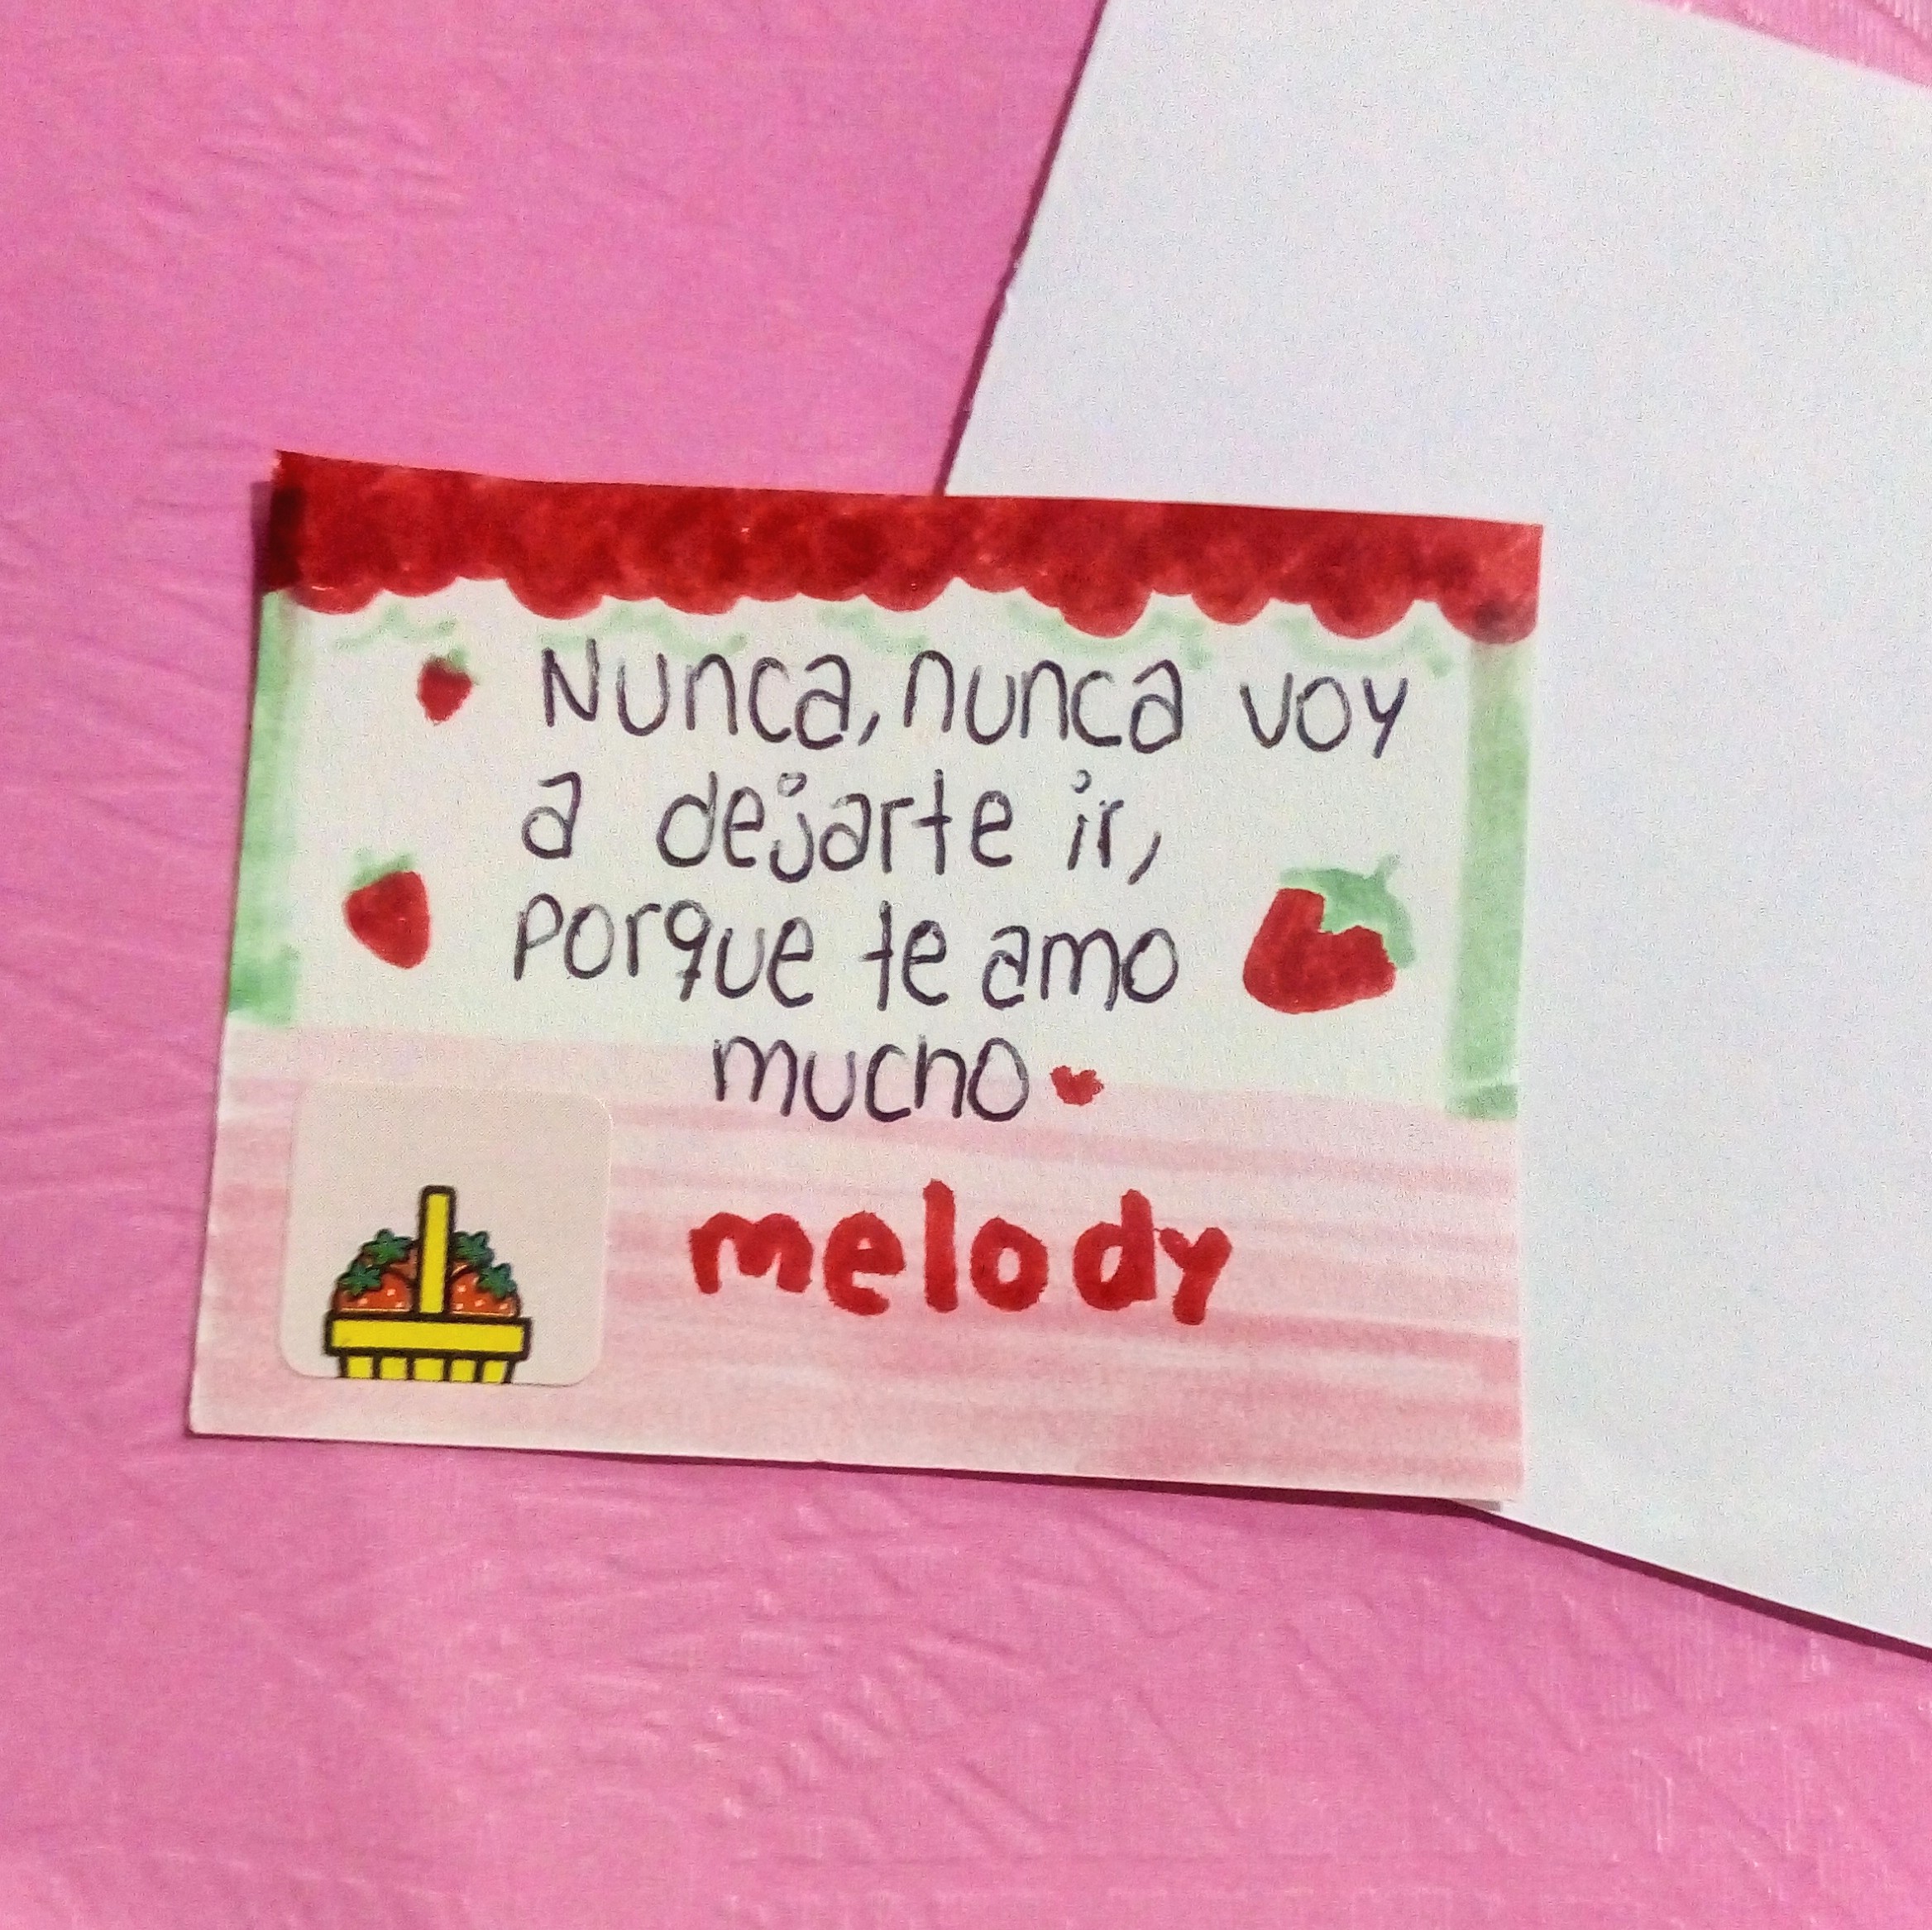 Nunca, nunca voy
a dejarte ir,
porque te amo
mucho
melody